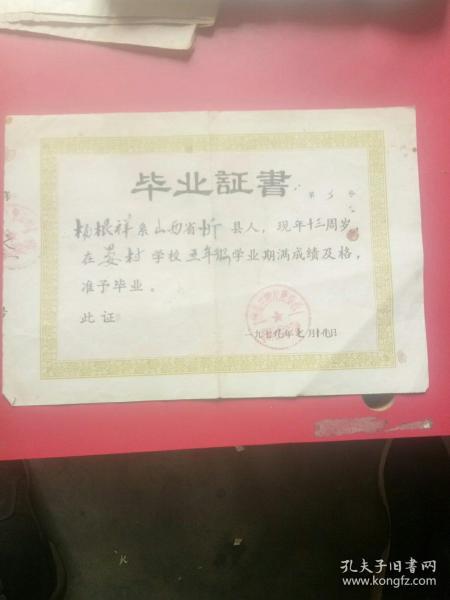 毕业証書
第 号
杨根祥系山西省忻县人，现年十三周岁，
在 村学校五年级学业期满成绩及格，
准予毕业。
此证
一九七 年七月十 日
孔夫子旧书网
www.kongfz.com